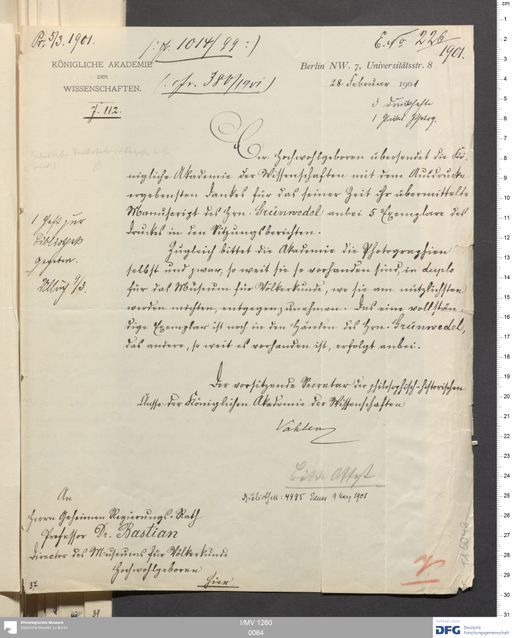 Pr. 5/3. 1901.
(: ff. 1014/99 :)
E. No 226/1901.
KÖNIGLICHE AKADEMIE
DER
WISSENSCHAFTEN.
J. 112.
(: cfr. 380/1901 :)
Berlin NW. 7, Universitätsstr. 8
28. Februar 1901
3 Druckhefte
1
Ew. Hochwohlgeboren übersendet die Kö-
nigliche Akademie der Wissenschaften mit dem Ausdrucke
ergebensten Dankes für das seiner Zeit ihr übermittelte
Manuscript des Hrn. Grünwedel anbei 5 Exemplare des
Drucks in den Sitzungsberichten.
Zugleich bittet die Akademie die Photographien
selbst und zwar, so weit sie so vorhanden sind, in duplo
für das Museum für Völkerkunde, wo sie am nützlichsten
werden möchten, entgegenzunehmen. Das eine vollstän-
dige Exemplar ist noch in den Händen des Hrn. Grünwedel,
das andere, so weit es vorhanden ist, erfolgt anbei.
1 Heft zur
Bibliothek
gegeben.
9/3.
Der vorsitzende Secretar der philosophisch-historischen
Classe der Königlichen Akademie der Wissenschaften
Vahlen
Bibliothek: 4985 9 März 1901
An
Herrn Geheimen Regierungs-Rath
Professor Dr. Bastian
Director des Museums für Völkerkunde
Hochwohlgeboren
Hier
37.
Ethnologisches Museum
Staatliche Museen zu Berlin
I/MV 1260
0064
DFG
Deutsche
Forschungsgemeinschaft